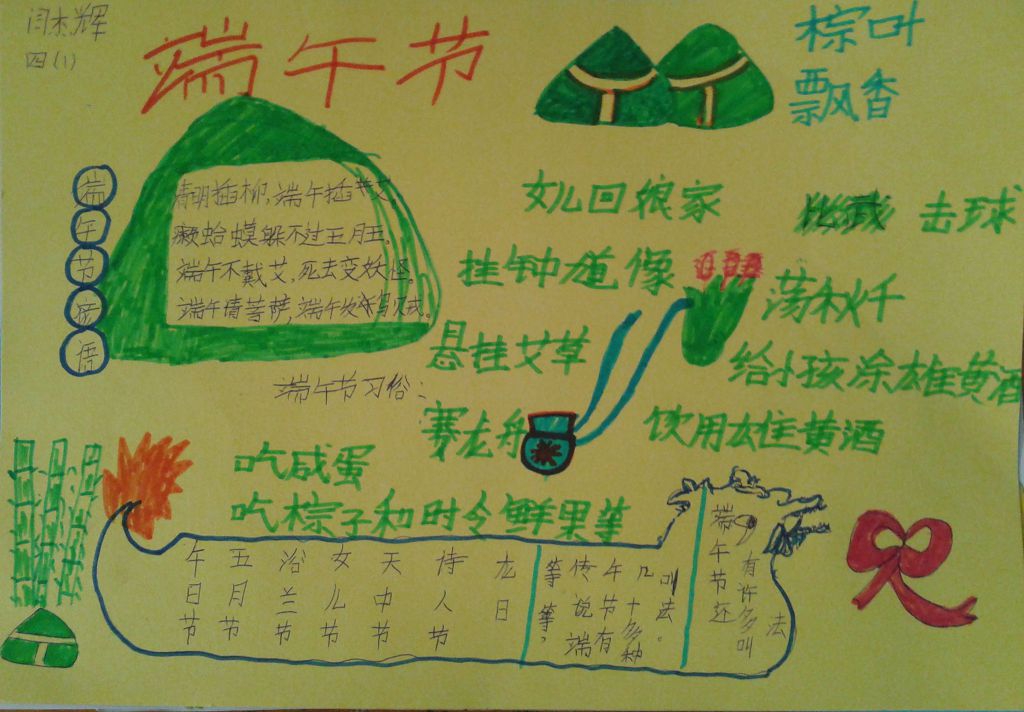 闫杰辉
四(1)
端午节
棕叶
飘香
端午节
清明插柳,端午插艾,
癞蛤蟆躲不过五月五。
端午不戴艾,死去变妖怪。
端午请菩萨,端午
女儿回娘家
击球
挂钟馗像
荡秋千
悬挂艾草
给小孩涂雄黄酒
端午节习俗:
赛龙舟
饮用雄黄酒
吃咸蛋
吃棕子和时令鲜果等
端午节还
有许多叫
法
叫法。
几十多种
午节有
传说端
等等,
龙日
诗人节
天中节
女儿节
浴兰节
五月节
午日节